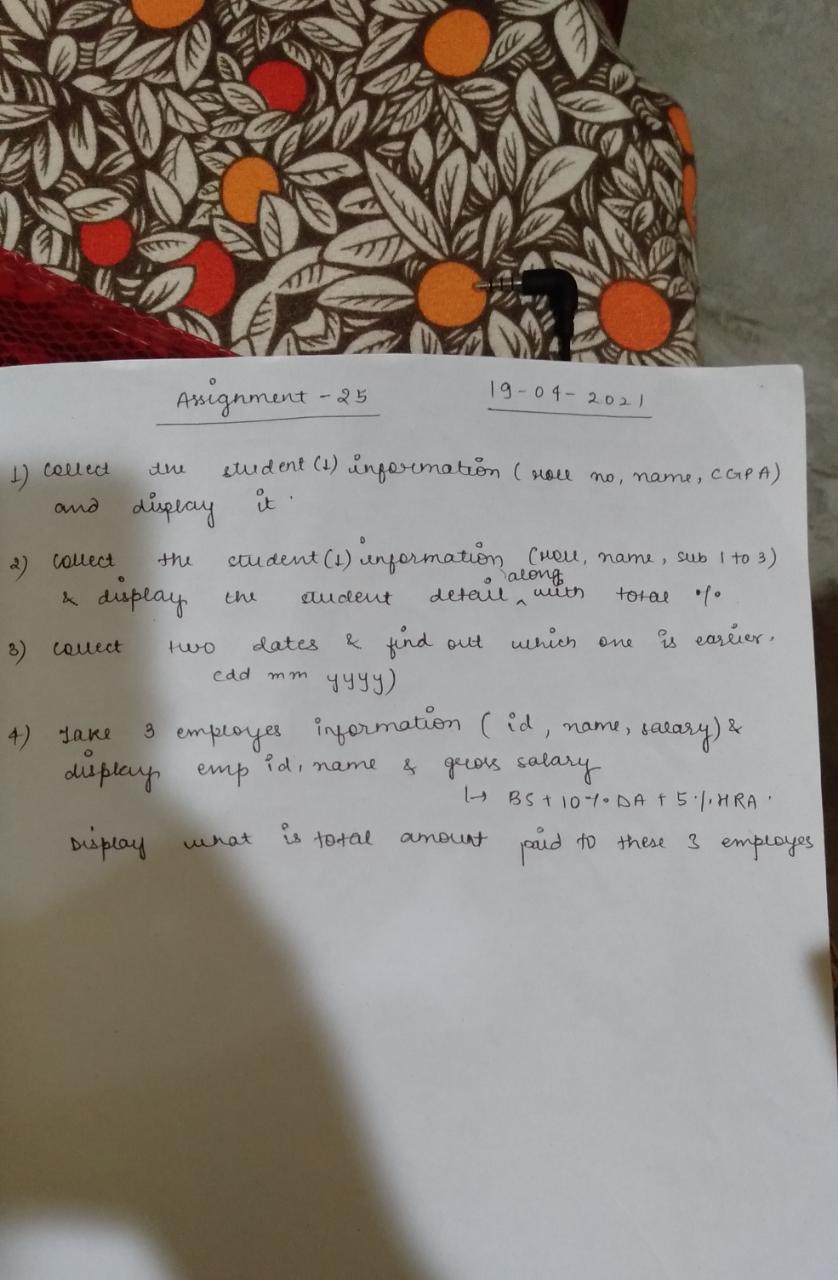 Assignment - 25 19-04-2021
1) collect the student (1) information (roll no, name, CGPA)
and display it.
2) collect the student (1) information (roll, name, sub 1 to 3)
& display the student detail along with total %
3) collect two dates & find out which one is earlier.
(dd mm yyyy)
4) Take 3 employes information (id, name, salary) &
display emp id, name & gross salary
↳ BS + 10% DA + 5% HRA.
Display what is total amount paid to these 3 employes